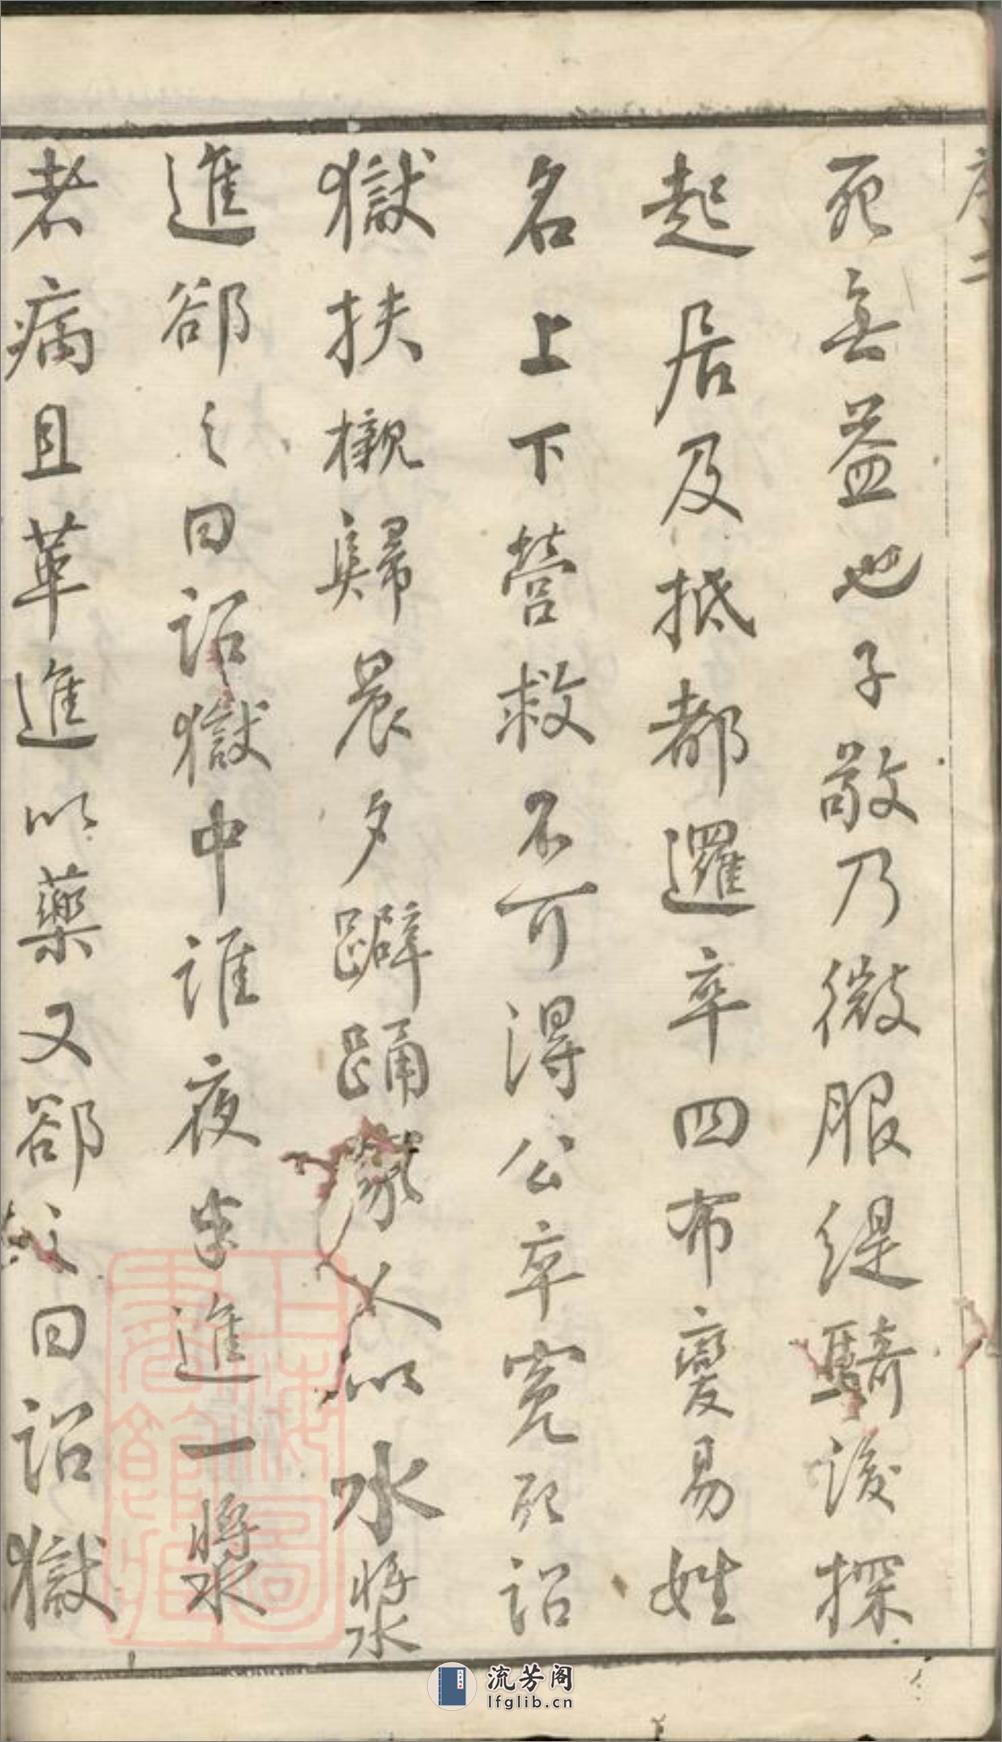 序二
死無益也子敬乃微服緹騎後探
起居及抵都邏卒四布變易姓
名上下營救不可得公卒冤死詔
獄扶櫬歸晨夕躃踊家人以水漿
進卻之曰詔獄中誰夜半進一漿
者病且革進以藥又卻之曰詔獄
上海圖書館藏
流芳阁
lfglib.cn